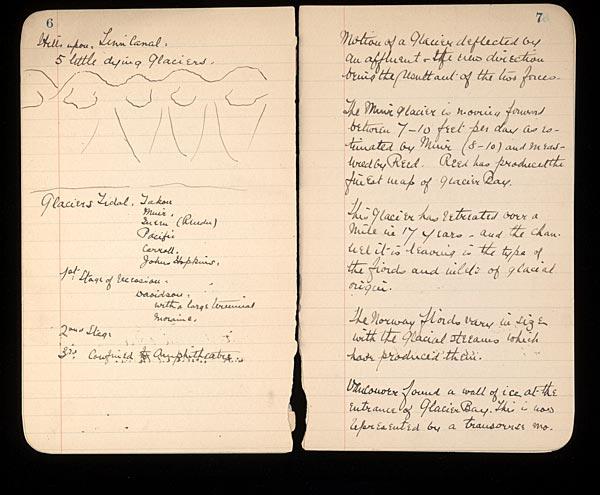 6
Hills upon. Linn Canal.
5 little dying Glaciers.
Glaciers Tidal. Takou
Muir.
Queen (Rendu)
Pacific
Carroll.
Johns Hopkins.
1st Stage of recession.
Davidson.
with a large terminal
moraine.
2nd Stage
3rd. Confined to Amphitheatre
7
Motion of a Glacier deflected by
an affluent & the new direction
being the resultant of the two forces.
The Muir Glacier is moving forward
between 7-10 feet per day as es-
timated by Muir (8-10) and meas-
ured by Reid. Reid has produced the
finest map of Glacier Bay.
This Glacier has retreated over a
mile in 17 years - and the chan-
nel it is leaving is the type of
the fiords and inlets of glacial
origin.
The Norway fiords vary in size
with the glacial streams which
have produced them.
Vancouver found a wall of ice at the
entrance of Glacier Bay. This is now
represented by a transverse mo.